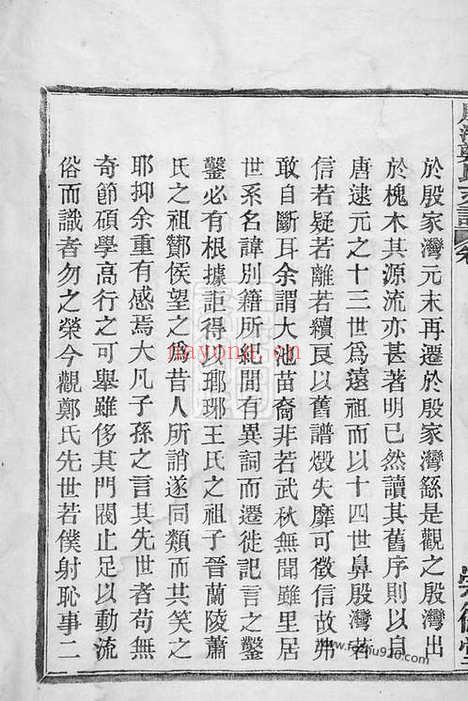 於殷家灣元末再遷於殷家灣繇是觀之殷灣出
於槐木其源流亦甚著明已然讀其舊序則以自
唐逮元之十三世爲遠祖而以十四世鼻殷灣若
信若疑若離若續良以舊譜燬失靡可徵信故弗
敢自斷耳余謂大池苗裔非若武秋無聞雖里居
世系名諱別籍所紀間有異詞而遷徙記言之鑿
鑿必有根據詎得以瑯琊王氏之祖子晉蘭陵蕭
氏之祖酇侯望之爲昔人所誚遂同類而共笑之
耶抑余重有感焉大凡子孫之言其先世者苟無
奇節碩學高行之可舉雖侈其門閥止足以動流
俗而識者勿之榮今觀鄭氏先世若僕射恥事二
nayong.cn
www.fozhu920.com